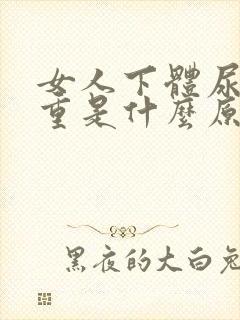 女人下體尿
重是什麼原
黑夜的大白兔